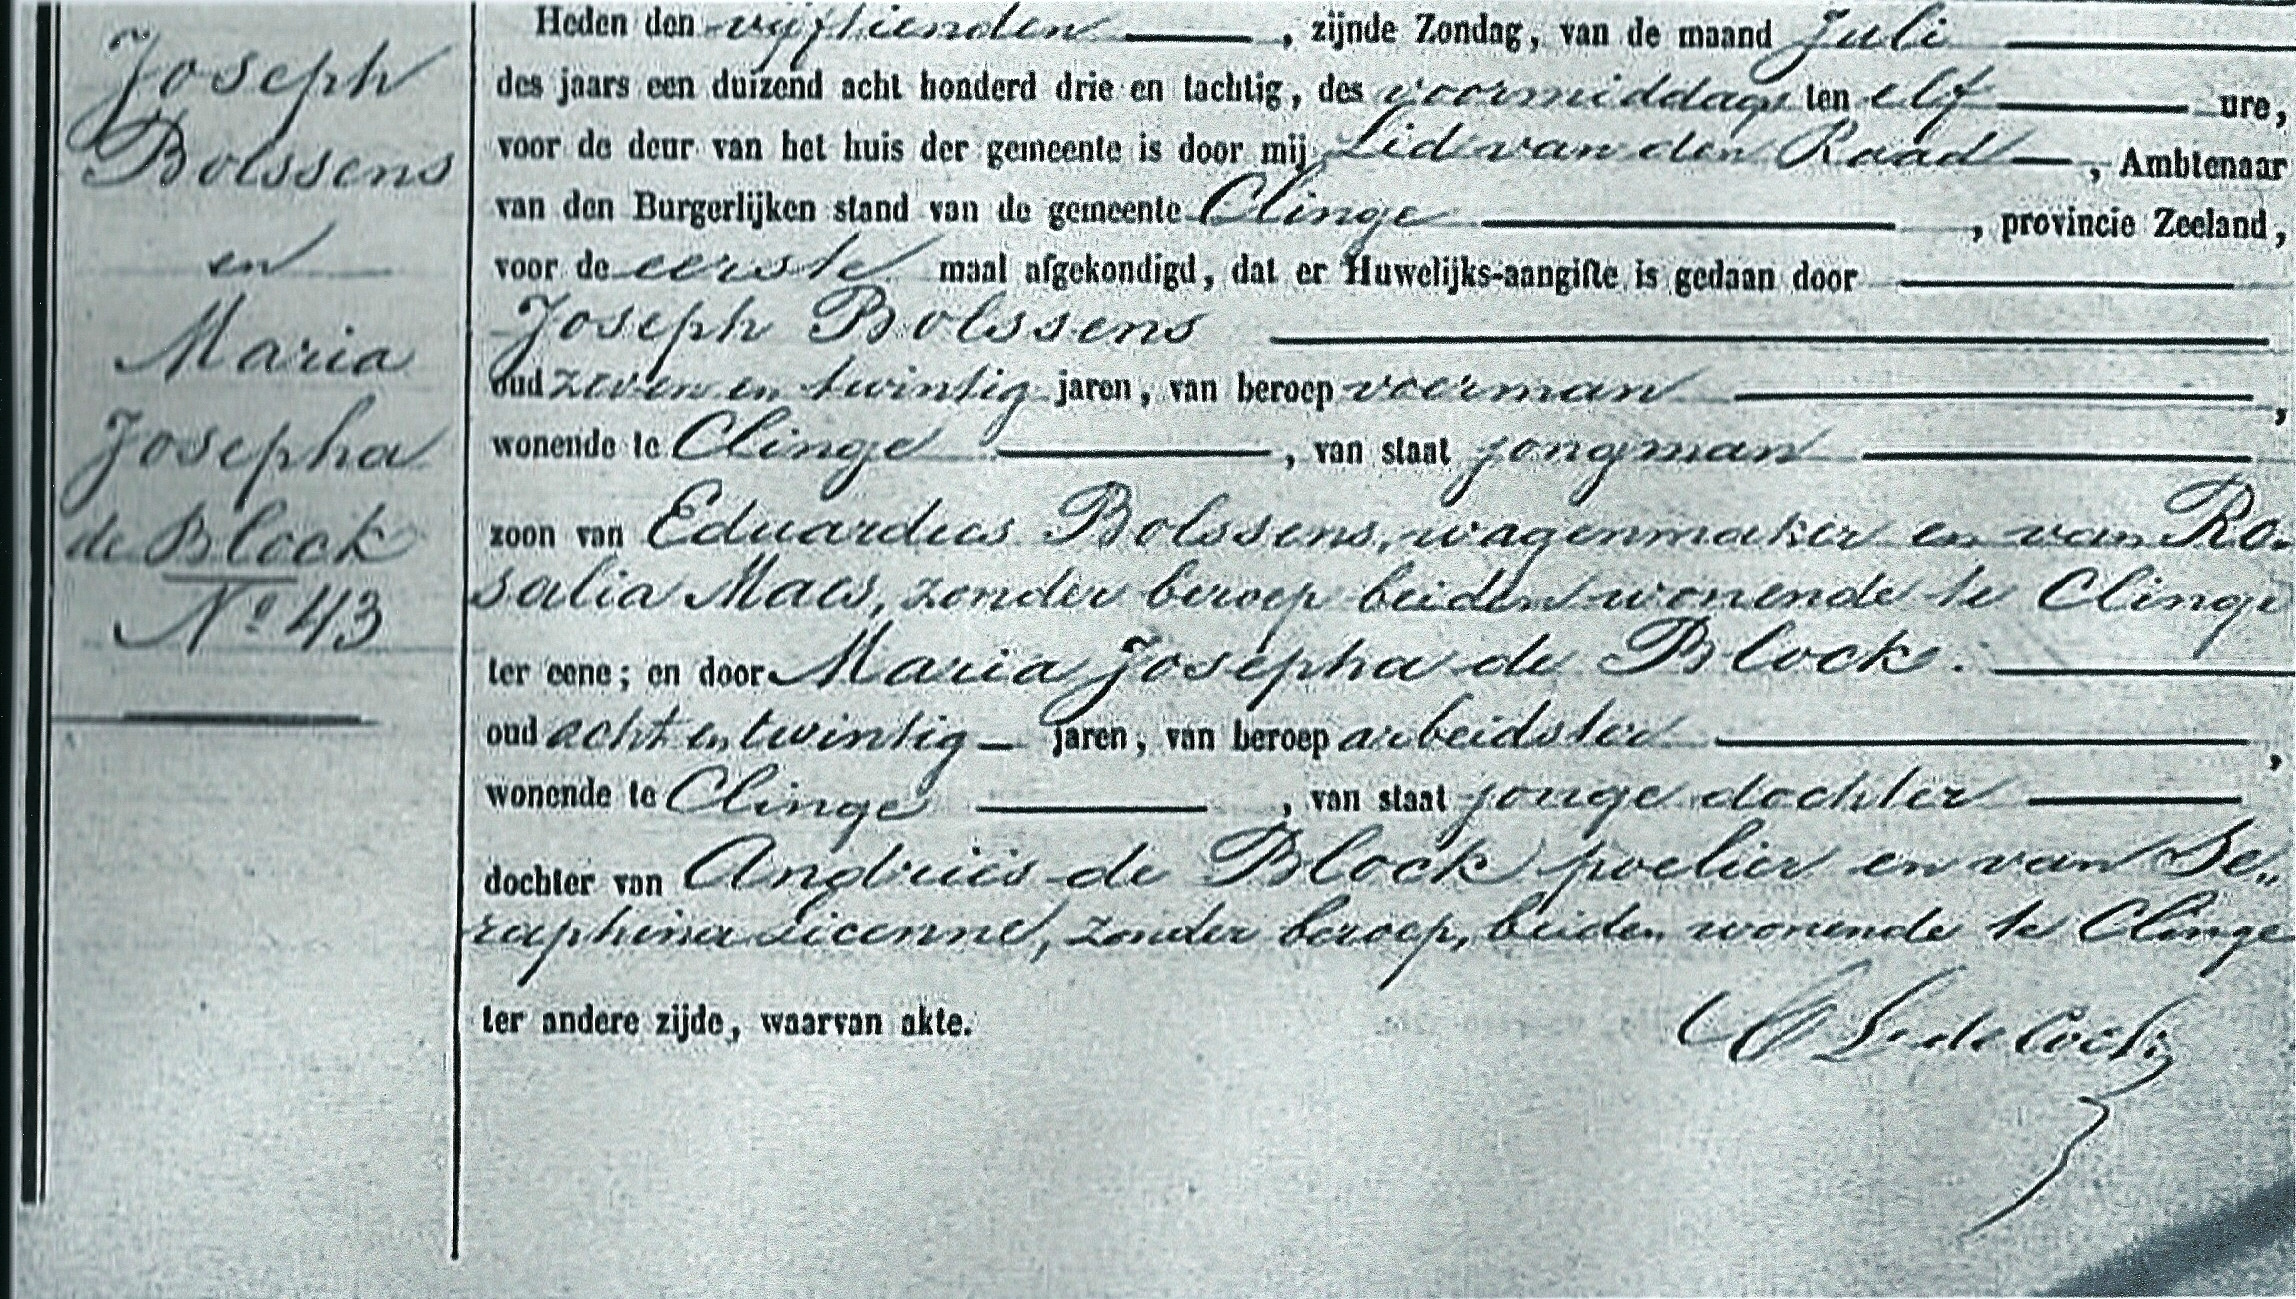 Joseph
Bolssens
en
Maria
Josepha
de Block
No 43
Heden den vijftienden, zijnde Zondag, van de maand Juli
des jaars een duizend acht honderd drie en tachtig, des voormiddags ten elf ure,
voor de deur van het huis der gemeente is door mij Lid van den Raad, Ambtenaar
van den Burgerlijken stand van de gemeente Clinge, provincie Zeeland,
voor de eerste maal afgekondigd, dat er Huwelijks-aangifte is gedaan door
Joseph Bolssens
oud zeven en twintig jaren, van beroep voerman,
wonende te Clinge, van staat jongman
zoon van Eduardus Bolssens, wagenmaker en van Ro-
salia Maes, zonder beroep beiden wonende te Clinge
ter eene; en door Maria Josepha de Block.
oud acht en twintig jaren, van beroep arbeidster,
wonende te Clinge, van staat jonge dochter
dochter van Andries de Block poelier en van Se„
raphina, zonder beroep, beiden wonende te Clinge
ter andere zijde, waarvan akte.
de Cock